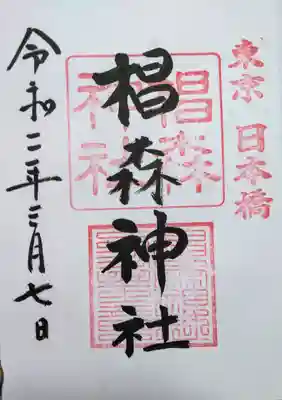 東京 日本橋
椙森神社
椙森
神社
令和二年三月七日